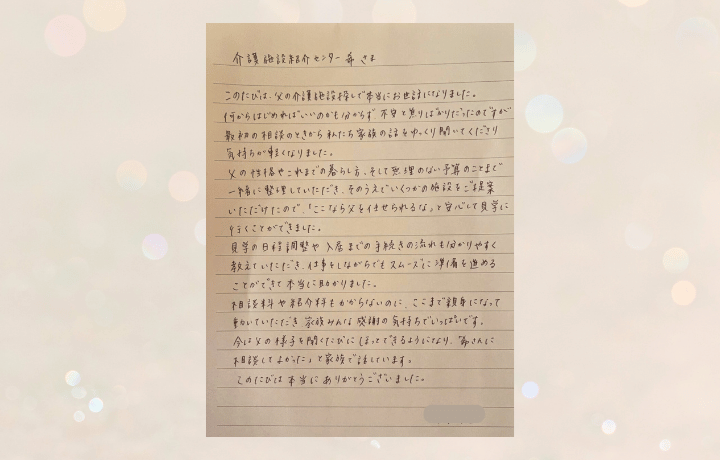 介護施設紹介センター 希 さま
このたびは、父の介護施設探しで本当にお世話になりました。
何からはじめればいいのかも分からず、不安と焦りばかりだったのですが
最初の相談のときから私たち家族の話をゆっくり聞いてくださり
気持ちが軽くなりました。
父の性格やこれまでの暮らし方、そして無理のない予算のことまで
一緒に整理していただき、そのうえでいくつかの施設をご提案
いただけたので、「ここなら父を任せられるな」と安心して見学に
行くことができました。
見学の日程調整や入居までの手続きの流れも分かりやすく
教えていただき、仕事をしながらでもスムーズに準備を進める
ことができて本当に助かりました。
相談料や紹介料もかからないのに、ここまで親身になって
動いていただき、家族みんな感謝の気持ちでいっぱいです。
今は父の様子を聞くたびにほっとできるようになり、「希さんに
相談してよかった」と家族で話しています。
このたびは本当にありがとうございました。